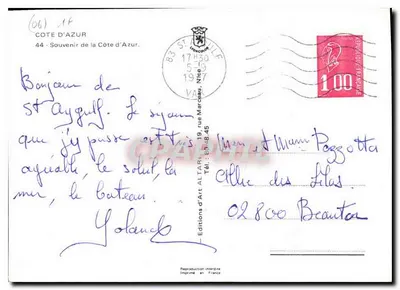 (06) 17
COTE D'AZUR
44 - Souvenir de la Côte d'Azur.
Bonjour de
St Aygulf. Le séjour
que j'y passe est très
agréable, le soleil, la
mer, le bateau.
Yolande
Editions d'Art ALTARI - 19, rue Marceau, Nice
83 ST
17H30
19
VAR
1,00
Mr et Mme Pozzotta
Allée des Lilas
02800 Beautor
Reproduction interdite
Imprimé en France